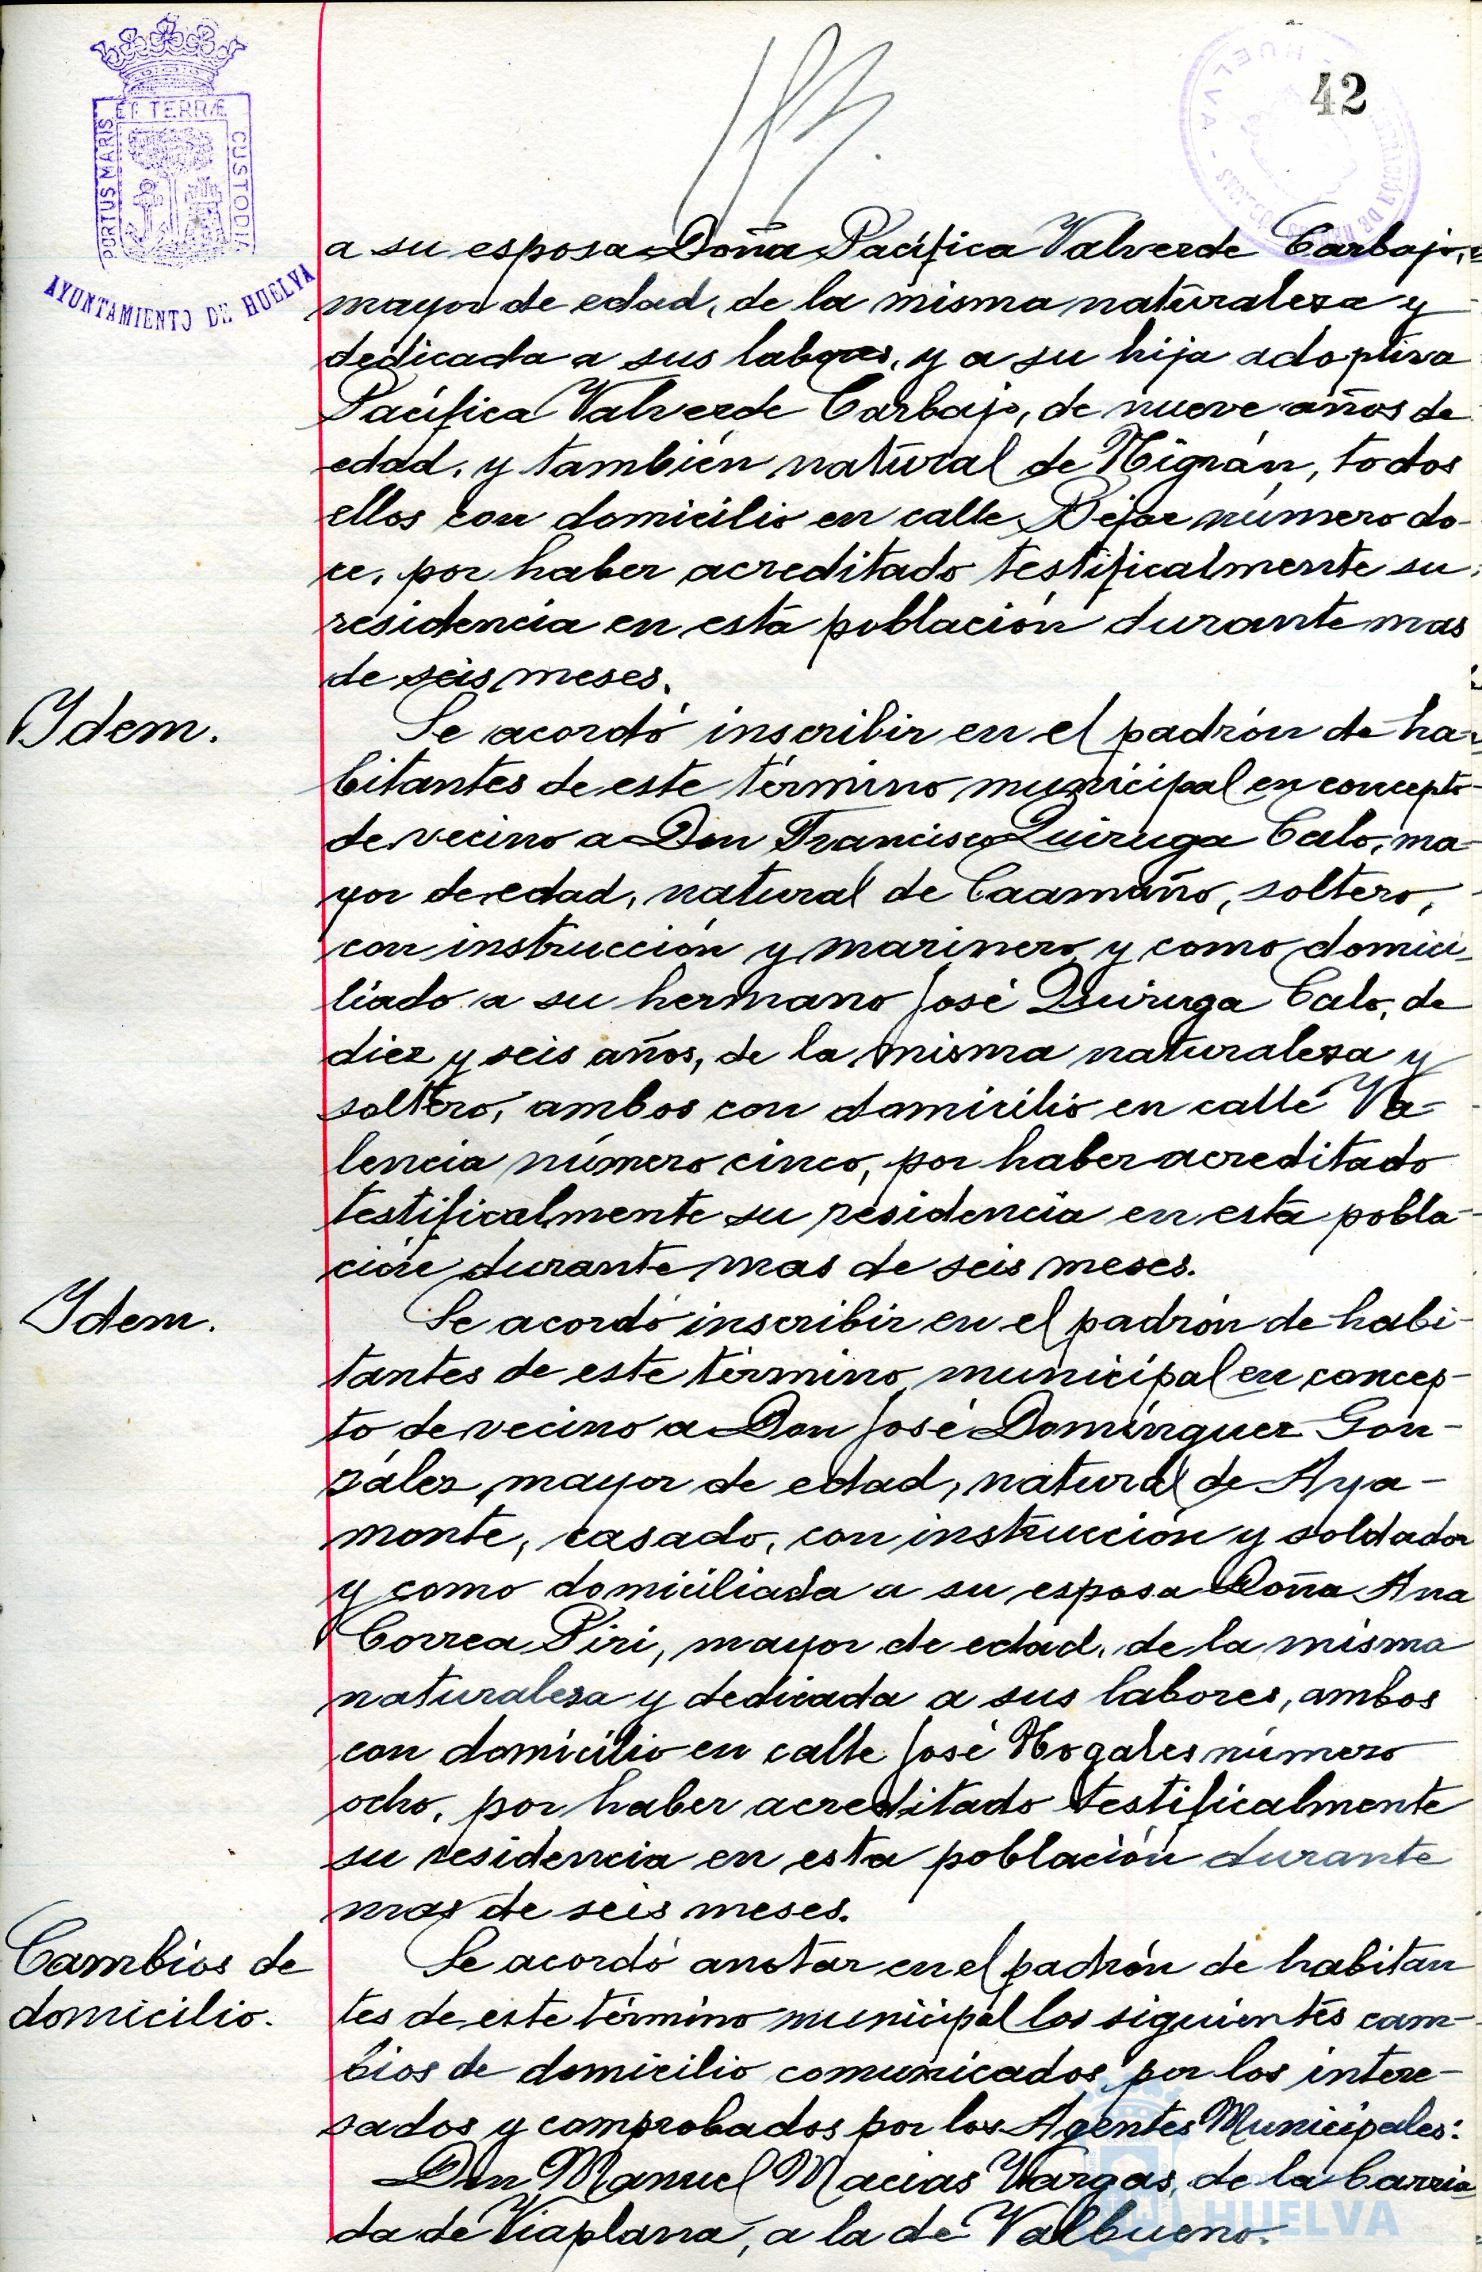 42
ET TERRÆ
PORTUS MARIS
CUSTODIA
AYUNTAMIENTO DE HUELVA
HUELVA
a su esposa Doña Pacífica Valverde Carbajo,
mayor de edad, de la misma naturaleza y
dedicada a sus labores, y a su hija adoptiva
Pacífica Valverde Carbajo, de nueve años de
edad, y también natural de Nigrán, todos
ellos con domicilio en calle Béjar número do-
ce, por haber acreditado testificalmente su
residencia en esta población durante mas
de seis meses.
Idem.
Se acordó inscribir en el padrón de ha-
bitantes de este término municipal en concepto
de vecino a Don Francisco Quiruga Calo, ma-
yor de edad, natural de Caamaño, soltero,
con instrucción y marinero y como domici-
liado a su hermano José Quiruga Calo, de
diez y seis años, de la misma naturaleza y
soltero, ambos con domicilio en calle Va-
lencia número cinco, por haber acreditado
testificalmente su residencia en esta pobla-
ción durante mas de seis meses.
Idem.
Se acordó inscribir en el padrón de habi-
tantes de este término municipal en concep-
to de vecino a Don José Domínguez Gon-
zález, mayor de edad, natural de Aya-
monte, casado, con instrucción y soldador
y como domiciliada a su esposa Doña Ana
Correa Piri, mayor de edad, de la misma
naturaleza y dedicada a sus labores, ambos
con domicilio en calle José Nogales número
ocho, por haber acreditado testificalmente
su residencia en esta población durante
mas de seis meses.
Cambios de
domicilio.
Se acordó anotar en el padrón de habitan
tes de este término municipal los siguientes cam-
bios de domicilio comunicados por los intere-
sados y comprobados por los Agentes Municipales:
Don Manuel Macias Vargas, de la barria
da de Viaplana, a la de Valbueno.
HUELVA